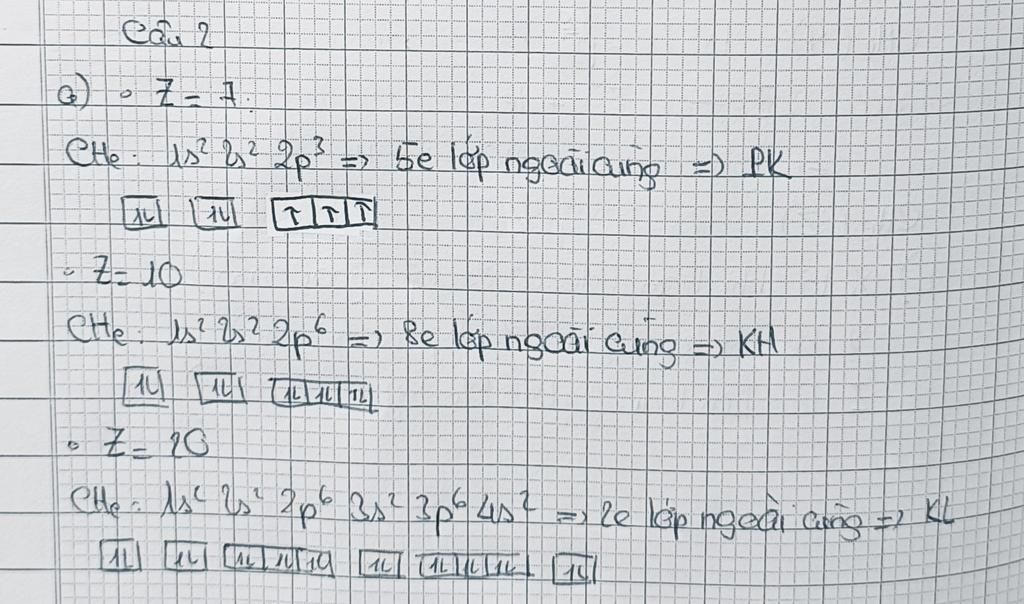 Câu 2
a) • Z = 7.
CHe: 1s² 2s² 2p³ => 5e lớp ngoài cùng => PK
↑↓ ↑↓ ↑ ↑ ↑
• Z = 10
CHe: 1s² 2s² 2p⁶ => 8e lớp ngoài cùng => KH
↑↓ ↑↓ ↑↓ ↑↓ ↑↓
• Z = 20
CHe: 1s² 2s² 2p⁶ 3s² 3p⁶ 4s² => 2e lớp ngoài cùng => KL
↑↓ ↑↓ ↑↓ ↑↓ ↑↓ ↑↓ ↑↓ ↑↓ ↑↓ ↑↓